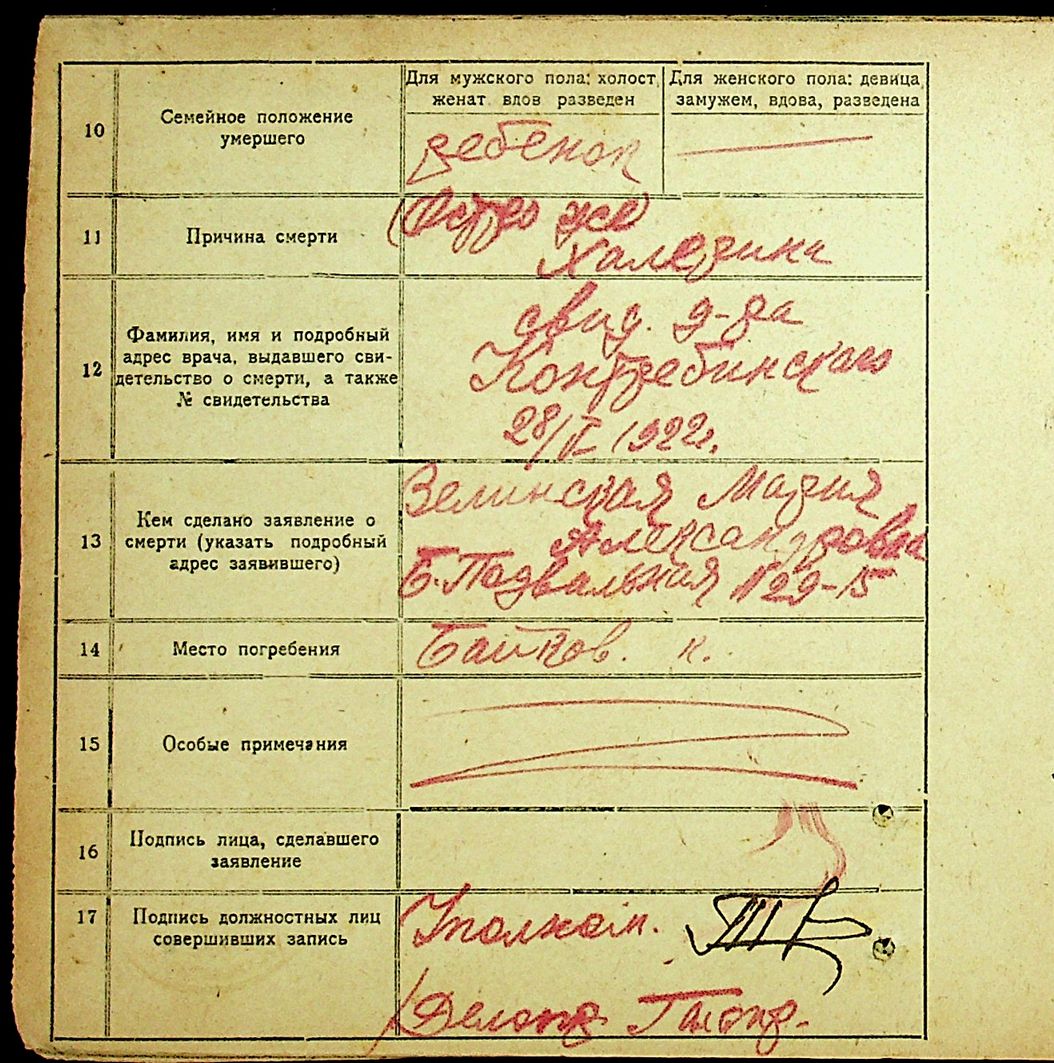 10
Семейное положение
умершего
Для мужского пола: холост,
женат вдов разведен
Для женского пола: девица
замужем, вдова, разведена
ребенок
11
Причина смерти
12
Фамилия, имя и подробный
адрес врача, выдавшего сви-
детельство о смерти, а также
№ свидетельства
свид. д-ра
Контребинского
1922г.
13
Кем сделано заявление о
смерти (указать подробный
адрес заявившего)
Зелинская Мария
Александровна
Б. Подвальная №29-15
14
Место погребения
Байков. к.
15
Особые примечания
16
Подпись лица, сделавшего
заявление
17
Подпись должностных лиц
совершивших запись
Уполном.
Делопр